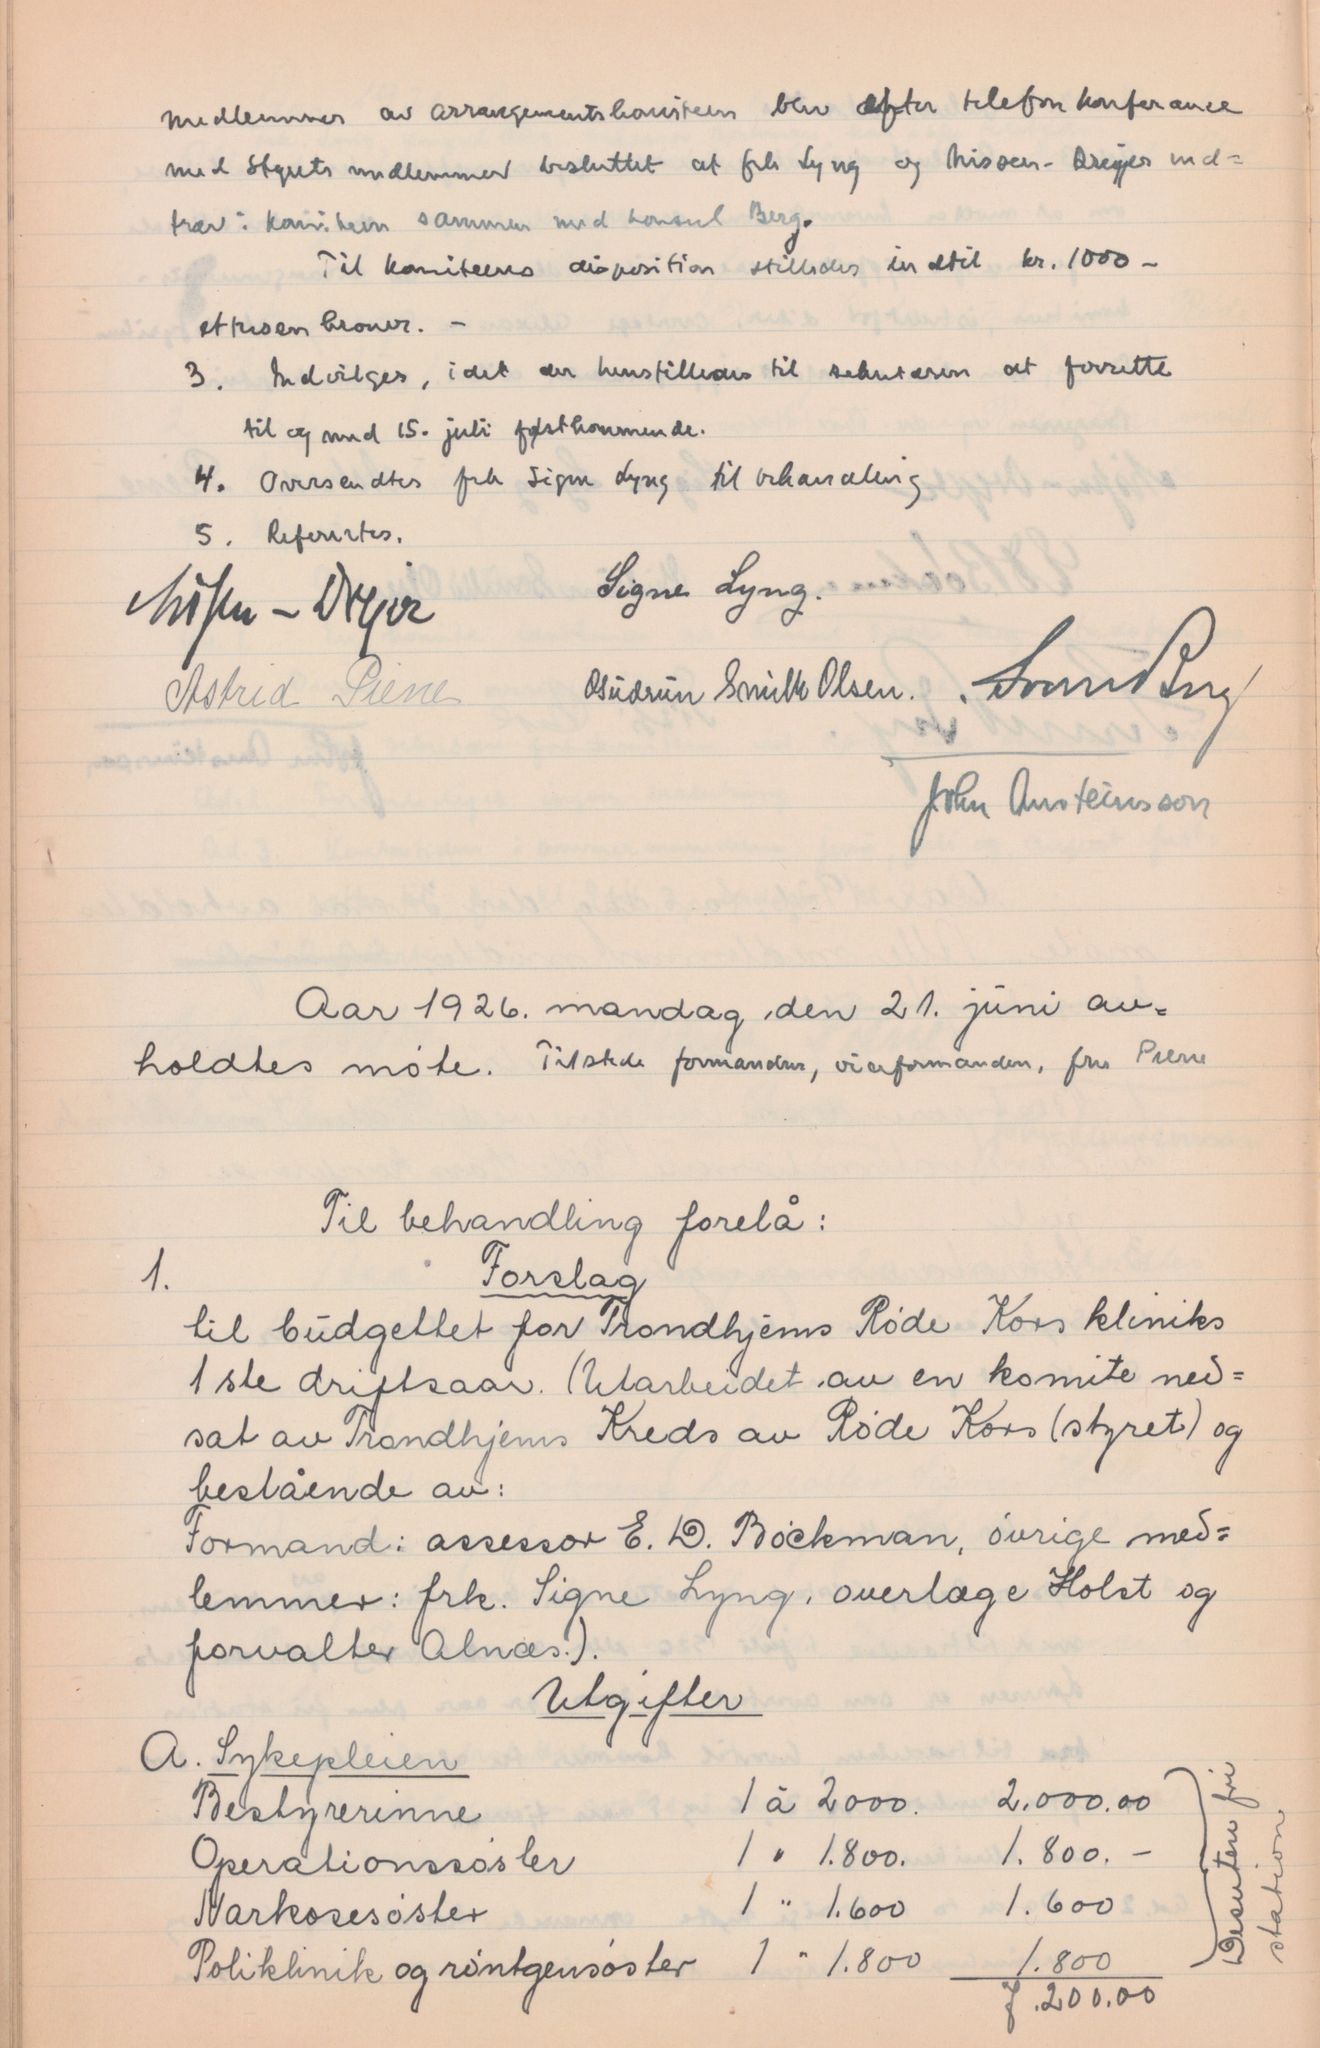 medlemmer av arrangementskomiteen blev efter telefonkonferance
med styrets medlemmer besluttet at frk Lyng og Nissen-Dreyer ind=
træ i komiteen sammen med konsul Berg.
Til komiteens disposition stilledes indtil kr. 1000 –
ettusen kroner. –
3. Indvilges, idet der henstilledes til sekretæren at forrette
til og med 15. juli førstkommende.
4. Oversendtes frk Signe Lyng til behandling
5. Refereertes.
Nissen-Dreyer
Signe Lyng.
Astrid Piene
Gudrun Smith Olsen.
Berg
John Austeinsson
Aar 1926. mandag den 21. juni av=
holdtes møte. Tilstede formanden, viceformanden, fru Piene
Til behandling forelå:
1. Forslag
til budgettet for Trondhjems Røde Kors kliniks
1ste driftsaar. (Utarbeidet av en komite ned=
sat av Trondhjems Kreds av Røde Kors (styret) og
bestående av:
Formand: assessor E. D. Bøckman, øvrige med=
lemmer: frk. Signe Lyng, overlæge Holst og
forvalter Alnæs.).
Utgifter
A. Sykepleien
Bestyrerinne 1 à 2000. 2.000.00
Operationssøster 1 " 1.800. 1.800. –
Narkosesøster 1 " 1.600 1.600
Poliklinik og røntgensøster 1 " 1.800 1.800
7.200.00
Desuten fri
station